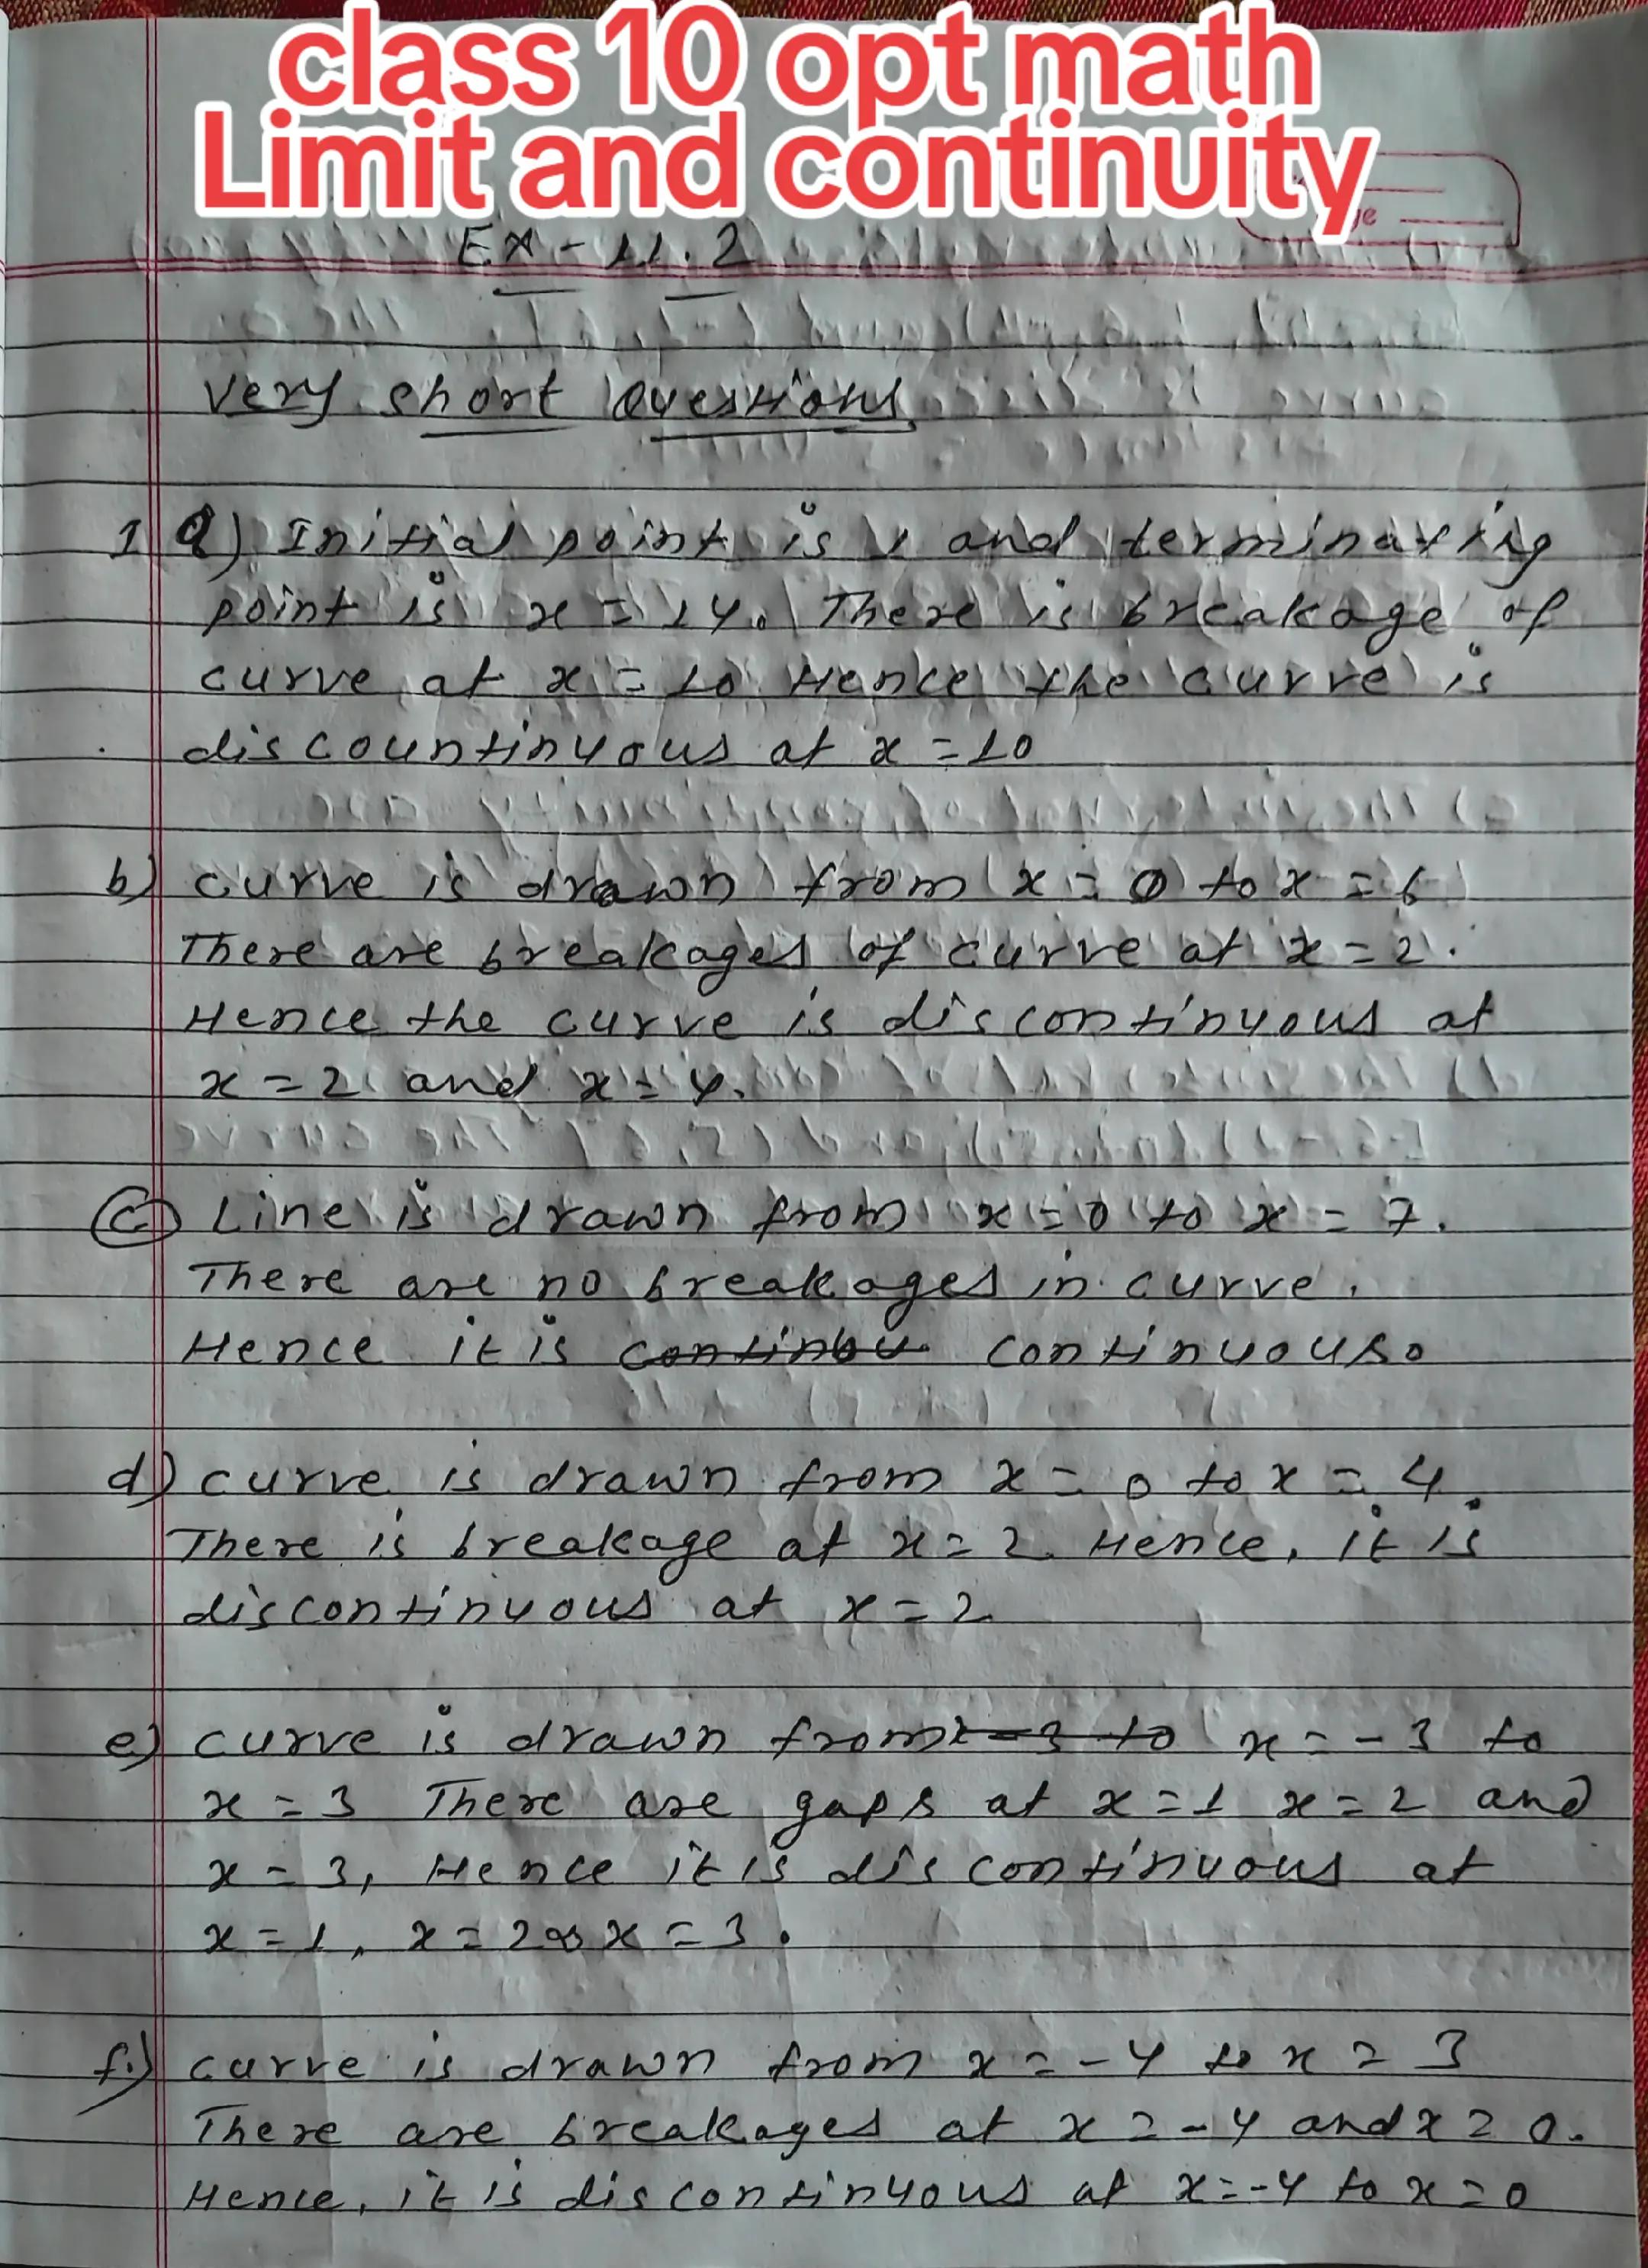 class 10 opt math
Limit and continuity
Ex - 11.2
Very short Questions
1 a) Initial point is 1 and terminating
point is x = 14. There is breakage of
curve at x = 10 Hence the curve is
discountinuous at x = 10
b) curve is drawn from x = 0 to x = 6
There are breakages of curve at x = 2.
Hence the curve is discontinuous at
x = 2 and x = 4.
c) Line is drawn from x = 0 to x = 7.
There are no breakages in curve.
Hence it is continuous.
d) curve is drawn from x = 0 to x = 4.
There is breakage at x = 2. Hence, it is
discontinuous at x = 2
e) curve is drawn from x = -3 to
x = 3 There are gaps at x = 1 x = 2 and
x = 3, Hence it is discontinuous at
x = 1, x = 2 x = 3.
f.) curve is drawn from x = -4 to x = 3
There are breakages at x = -4 and x = 0.
Hence, it is discontinuous at x = -4 to x = 0